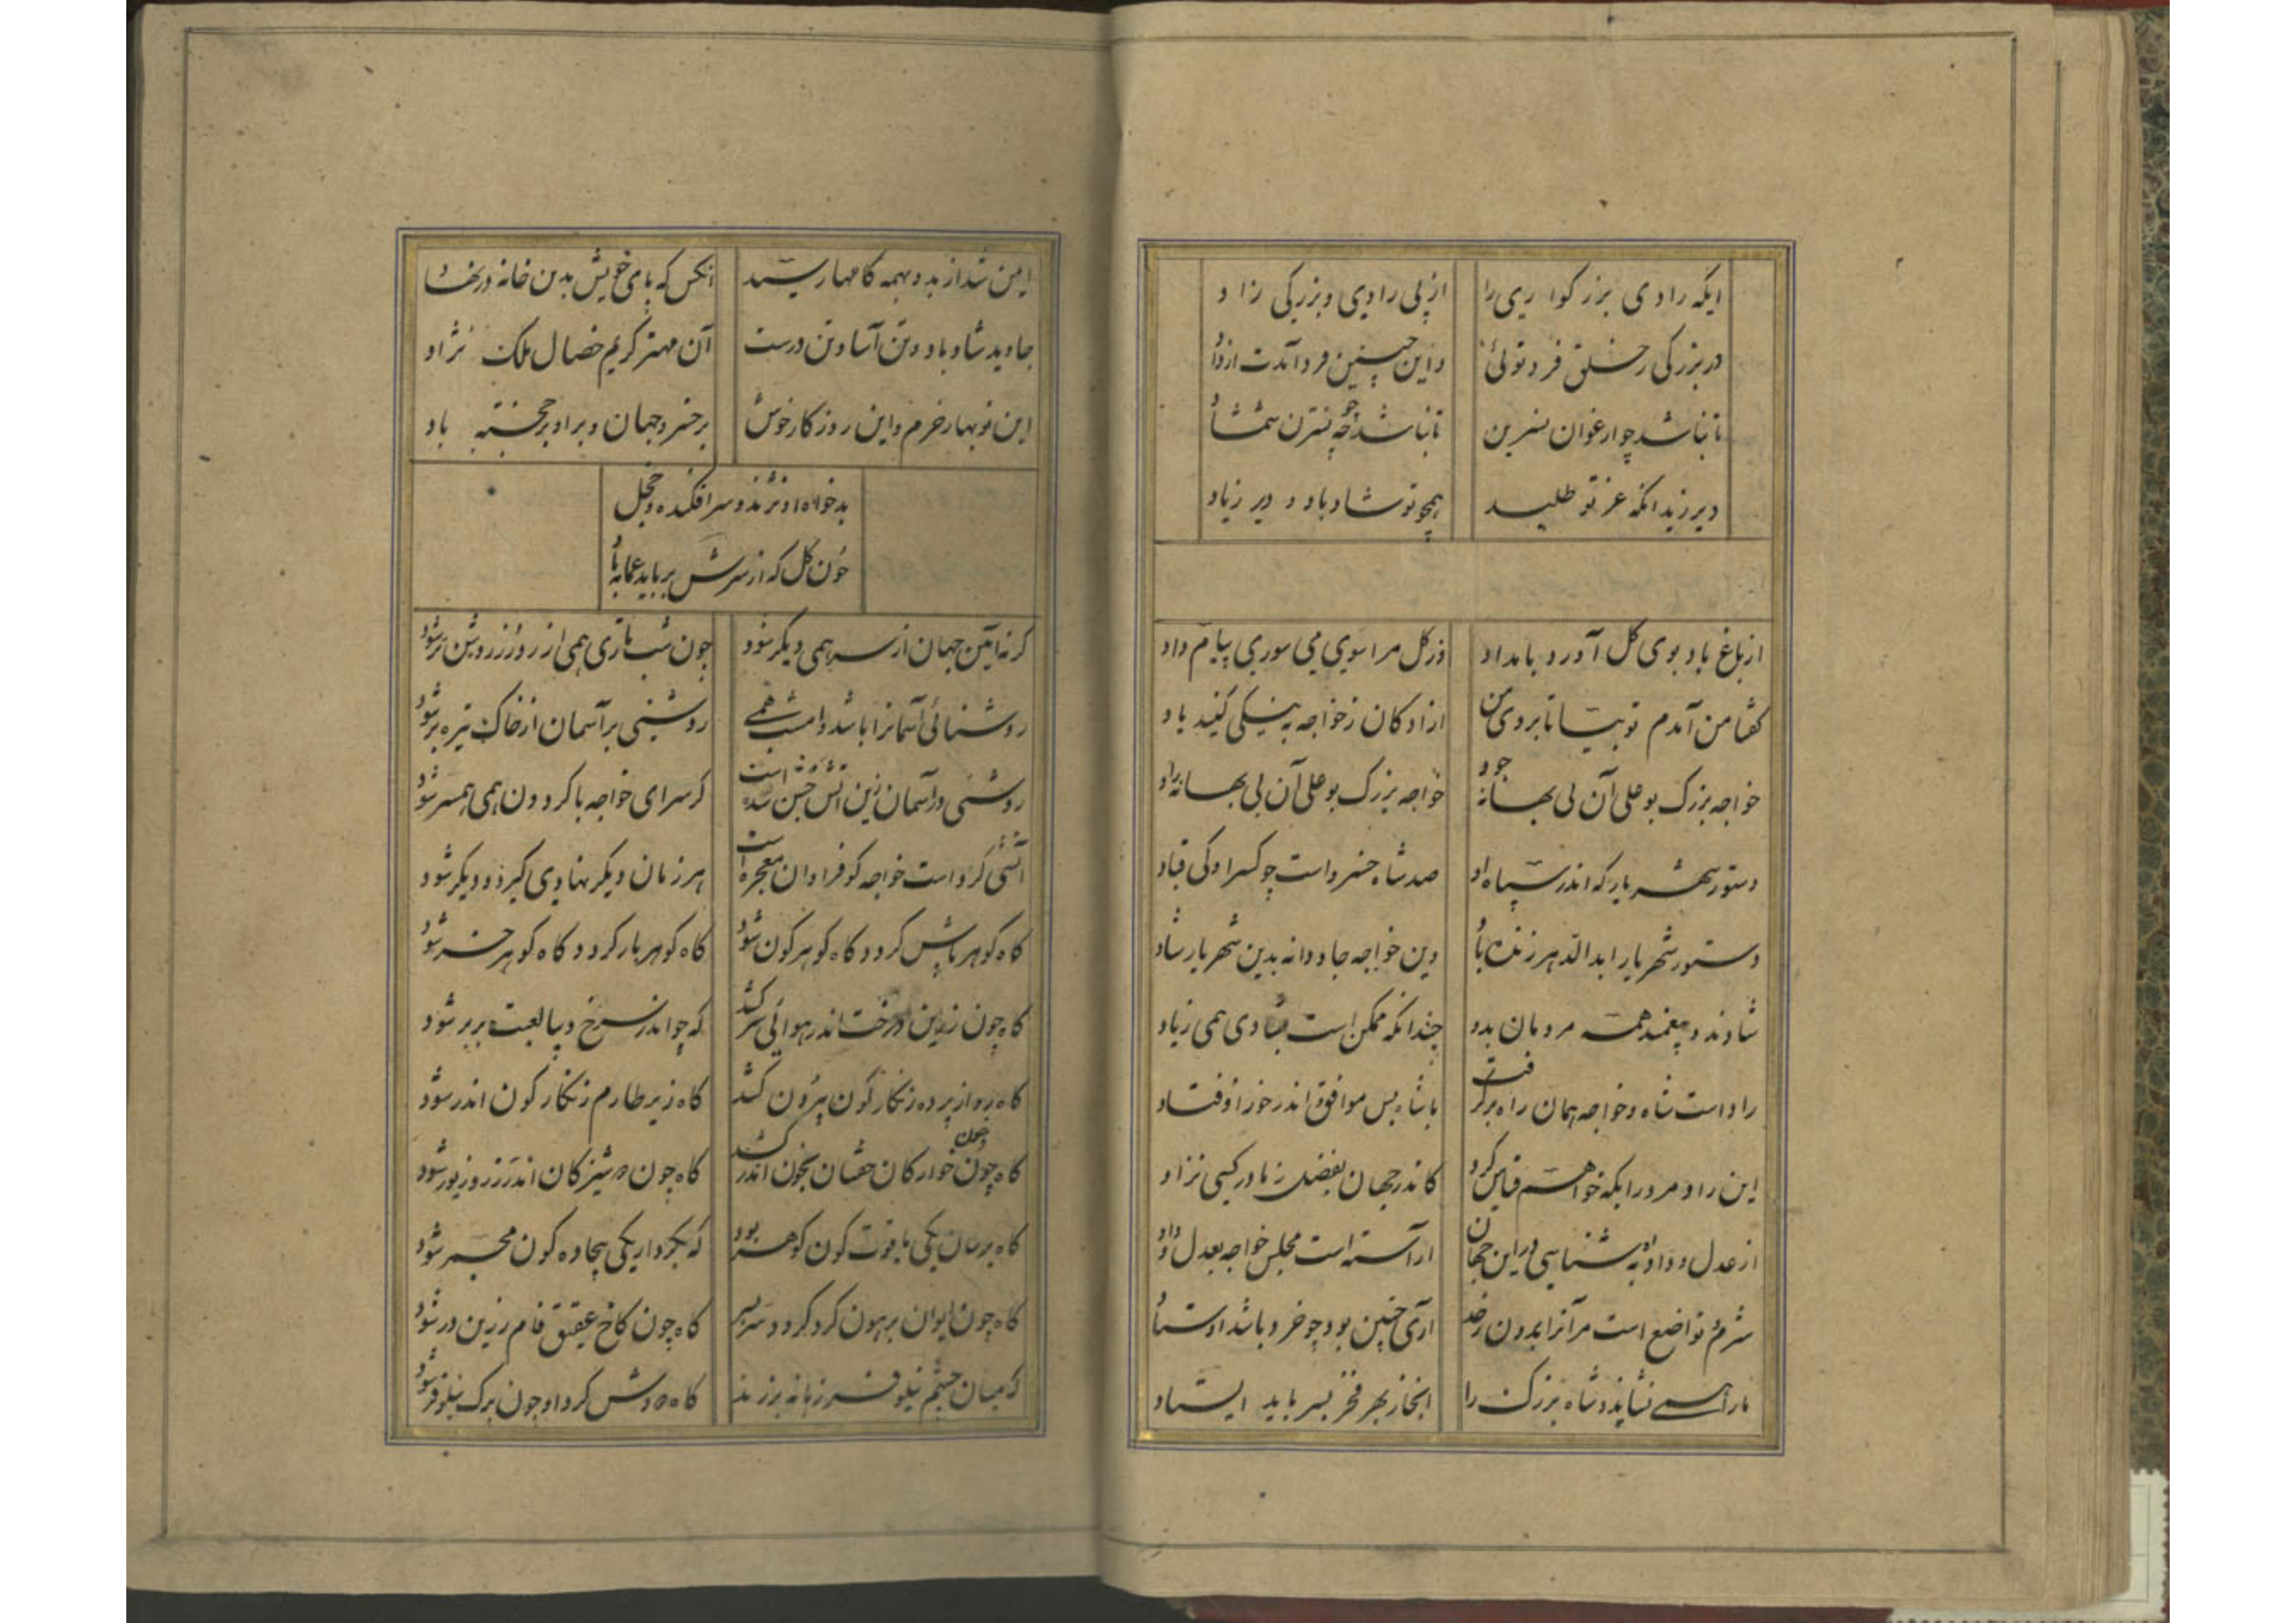 ایکه رادی بزرگواری را از پی رادی و بزرگی زاد
در بزرگی ز خلق فرد توئی و این چنین فرد آمدت از داد
تا نباشد چو ارغوان نسرین تا نباشد چو نسترن شمشاد
دیر زید انکه عز تو طلبید همچو تو شاد باد و دیر زیاد
از باغ باد بوی گل آورد بامداد وز گل مرا سوی می سوری پیام داد
گفتا من آمدم تو بیا تا بروی من ازادگان ز خواجه به نیکی کنند یاد
خواجه بزرگ بو علی آن بی بهانه جود خواجه بزرگ بو علی آن بی بهانه راد
دستور شهریار که اندر سپاه او صد شاه خسرو است چو کسرا و کی قباد
دستور شهریار ابد الدهر زنده باد وین خواجه جاودانه بدین شهریار شاد
شادند و بیغمند همه مردمان بدو چندانکه ممکن است بشادی همی زیاد
راد است شاه و خواجه همان راه برگرفت با شاه بس موافق اندر خور اوفتاد
این راد مرد را بکه خواهم قیاس کرد کاندر جهان بفضل ز مادر کسی نزاد
از عدل و داد به شناسی در این جهان اراسته است مجلس خواجه بعدل و داد
شرم و تواضع است مر آنرا بدون زحد اری چنین بود چو خرد باشد اوستاد
ما را همی نشاند و شاه بزرگ را انجا ز بهر فخر بسر باید ایستاد
ایمن شد از بد و بهمه کامها رسید انکس که پای خویش بدین خانه در نهاد
جاوید شاد باد و تن آسا و تن درست آن مهتر کریم خصال ملک نژاد
این نوبهار خرم و این روزگار خوش بر خسرو جهان و براو بر خجسته باد
بد خواه او نژند و سر افکنده و خجل
چون گل که از سرش برباید عمامه باد
گر نه آئین جهان از سر همی دیگر شود چون شب تاری همی از روز روشن تر شود
روشنائی آسمانرا باشد و امشب همی روشنی بر آسمان از خاک تیره بر شود
روشنی در آسمان زین آتش جشن سده است کز سرای خواجه با گردون همی همسر شود
آتشی کرد است خواجه کو فراوان معجز است هر زمان دیگر نهادی گیرد و دیگر شود
گاه گوهر پاش گردد گاه گوهر گون شود گاه گوهر بار گردد و گاه گوهر خر شود
گاه چون زرین درخت اندر هوائی سر کشد گه چو اندر سرخ دیبا لعبت بربر شود
گاه رو از پرده زنگار گون بیرون کشد گاه زیر طارم زنگار گون اندر شود
گاه چون خوارگان خفتان بخون اندر کشد گاه چون دوشیزگان اندر زر و زیور شود
گاه برسان یکی یاقوت گون گوهر بود گه بکردار یکی بیجاده گون مجمر شود
گاه چون ایوان برهون گرد گردد سر بسر گاه چون کاخ عقیق فام زرین در شود
گه میان چشم نیلوفر زبانه بر زند گاه دودش گرد او چون برگ نیلوفر شود